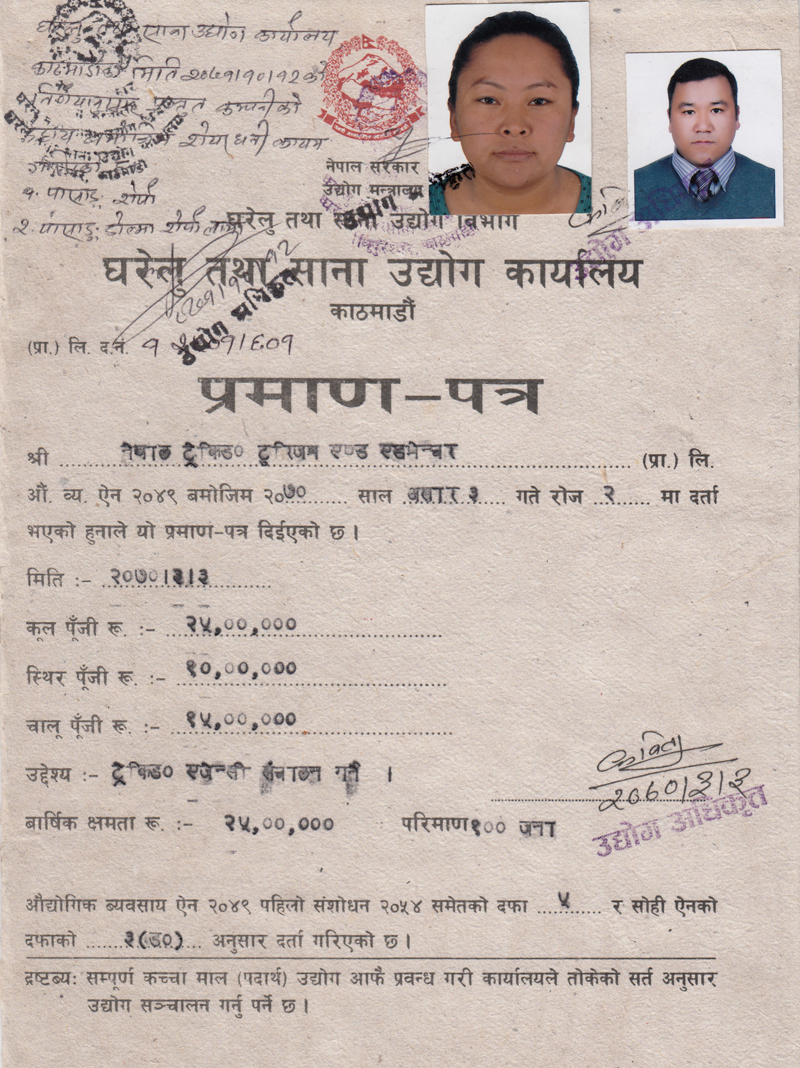 घरेलु तथा साना उद्योग कार्यालय
काठमाडौंको मिति २०७१।१०।१२ को
निर्णयानुसार प्रस्तुत कम्पनीको
शेयर धनी कायम
१. पासाङ शेर्पा
२. पासाङ डोल्मा शेर्पा लामा
नेपाल सरकार
उद्योग मन्त्रालय
घरेलु तथा साना उद्योग विभाग
घरेलु तथा साना उद्योग कार्यालय
काठमाडौं
उद्योग अधिकृत
(प्रा.) लि. द.नं.
प्रमाण-पत्र
श्री नेपाल ट्रेकिङ० टूरिजम एण्ड एडभेन्चर (प्रा.) लि.
औं. व्य. ऐन २०४९ बमोजिम २०७० साल अषार ३ गते रोज २ मा दर्ता
भएको हुनाले यो प्रमाण-पत्र दिईएको छ ।
मिति :- २०७०।३।३
कूल पूँजी रू. :- २५,००,०००
स्थिर पूँजी रू. :- १०,००,०००
चालू पूँजी रू. :- १५,००,०००
उद्देश्य :- ट्रेकिङ० एजेन्सी संचालन गर्ने ।
२०७०।३।३
उद्योग अधिकृत
बार्षिक क्षमता रू. :- २५,००,००० परिमाण १०० जना
औद्योगिक ब्यवसाय ऐन २०४९ पहिलो संशोधन २०५४ समेतको दफा ५ र सोही ऐनको
दफाको ३(ङ०) अनुसार दर्ता गरिएको छ ।
द्रष्टब्य: सम्पूर्ण कच्चा माल (पदार्थ) उद्योग आफै प्रवन्ध गरी कार्यालयले तोकेको सर्त अनुसार
उद्योग सञ्चालन गर्नु पर्ने छ ।